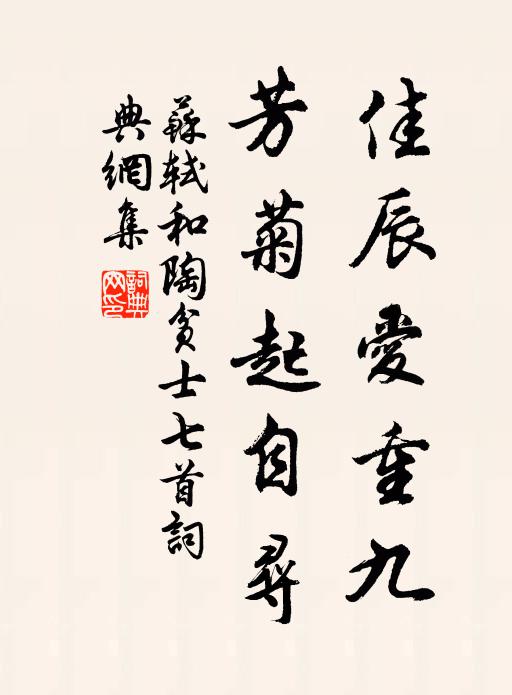 佳辰愛重九
芳菊起自尋
蘇軾和陶貧士七首詞
典網集
詞典網印